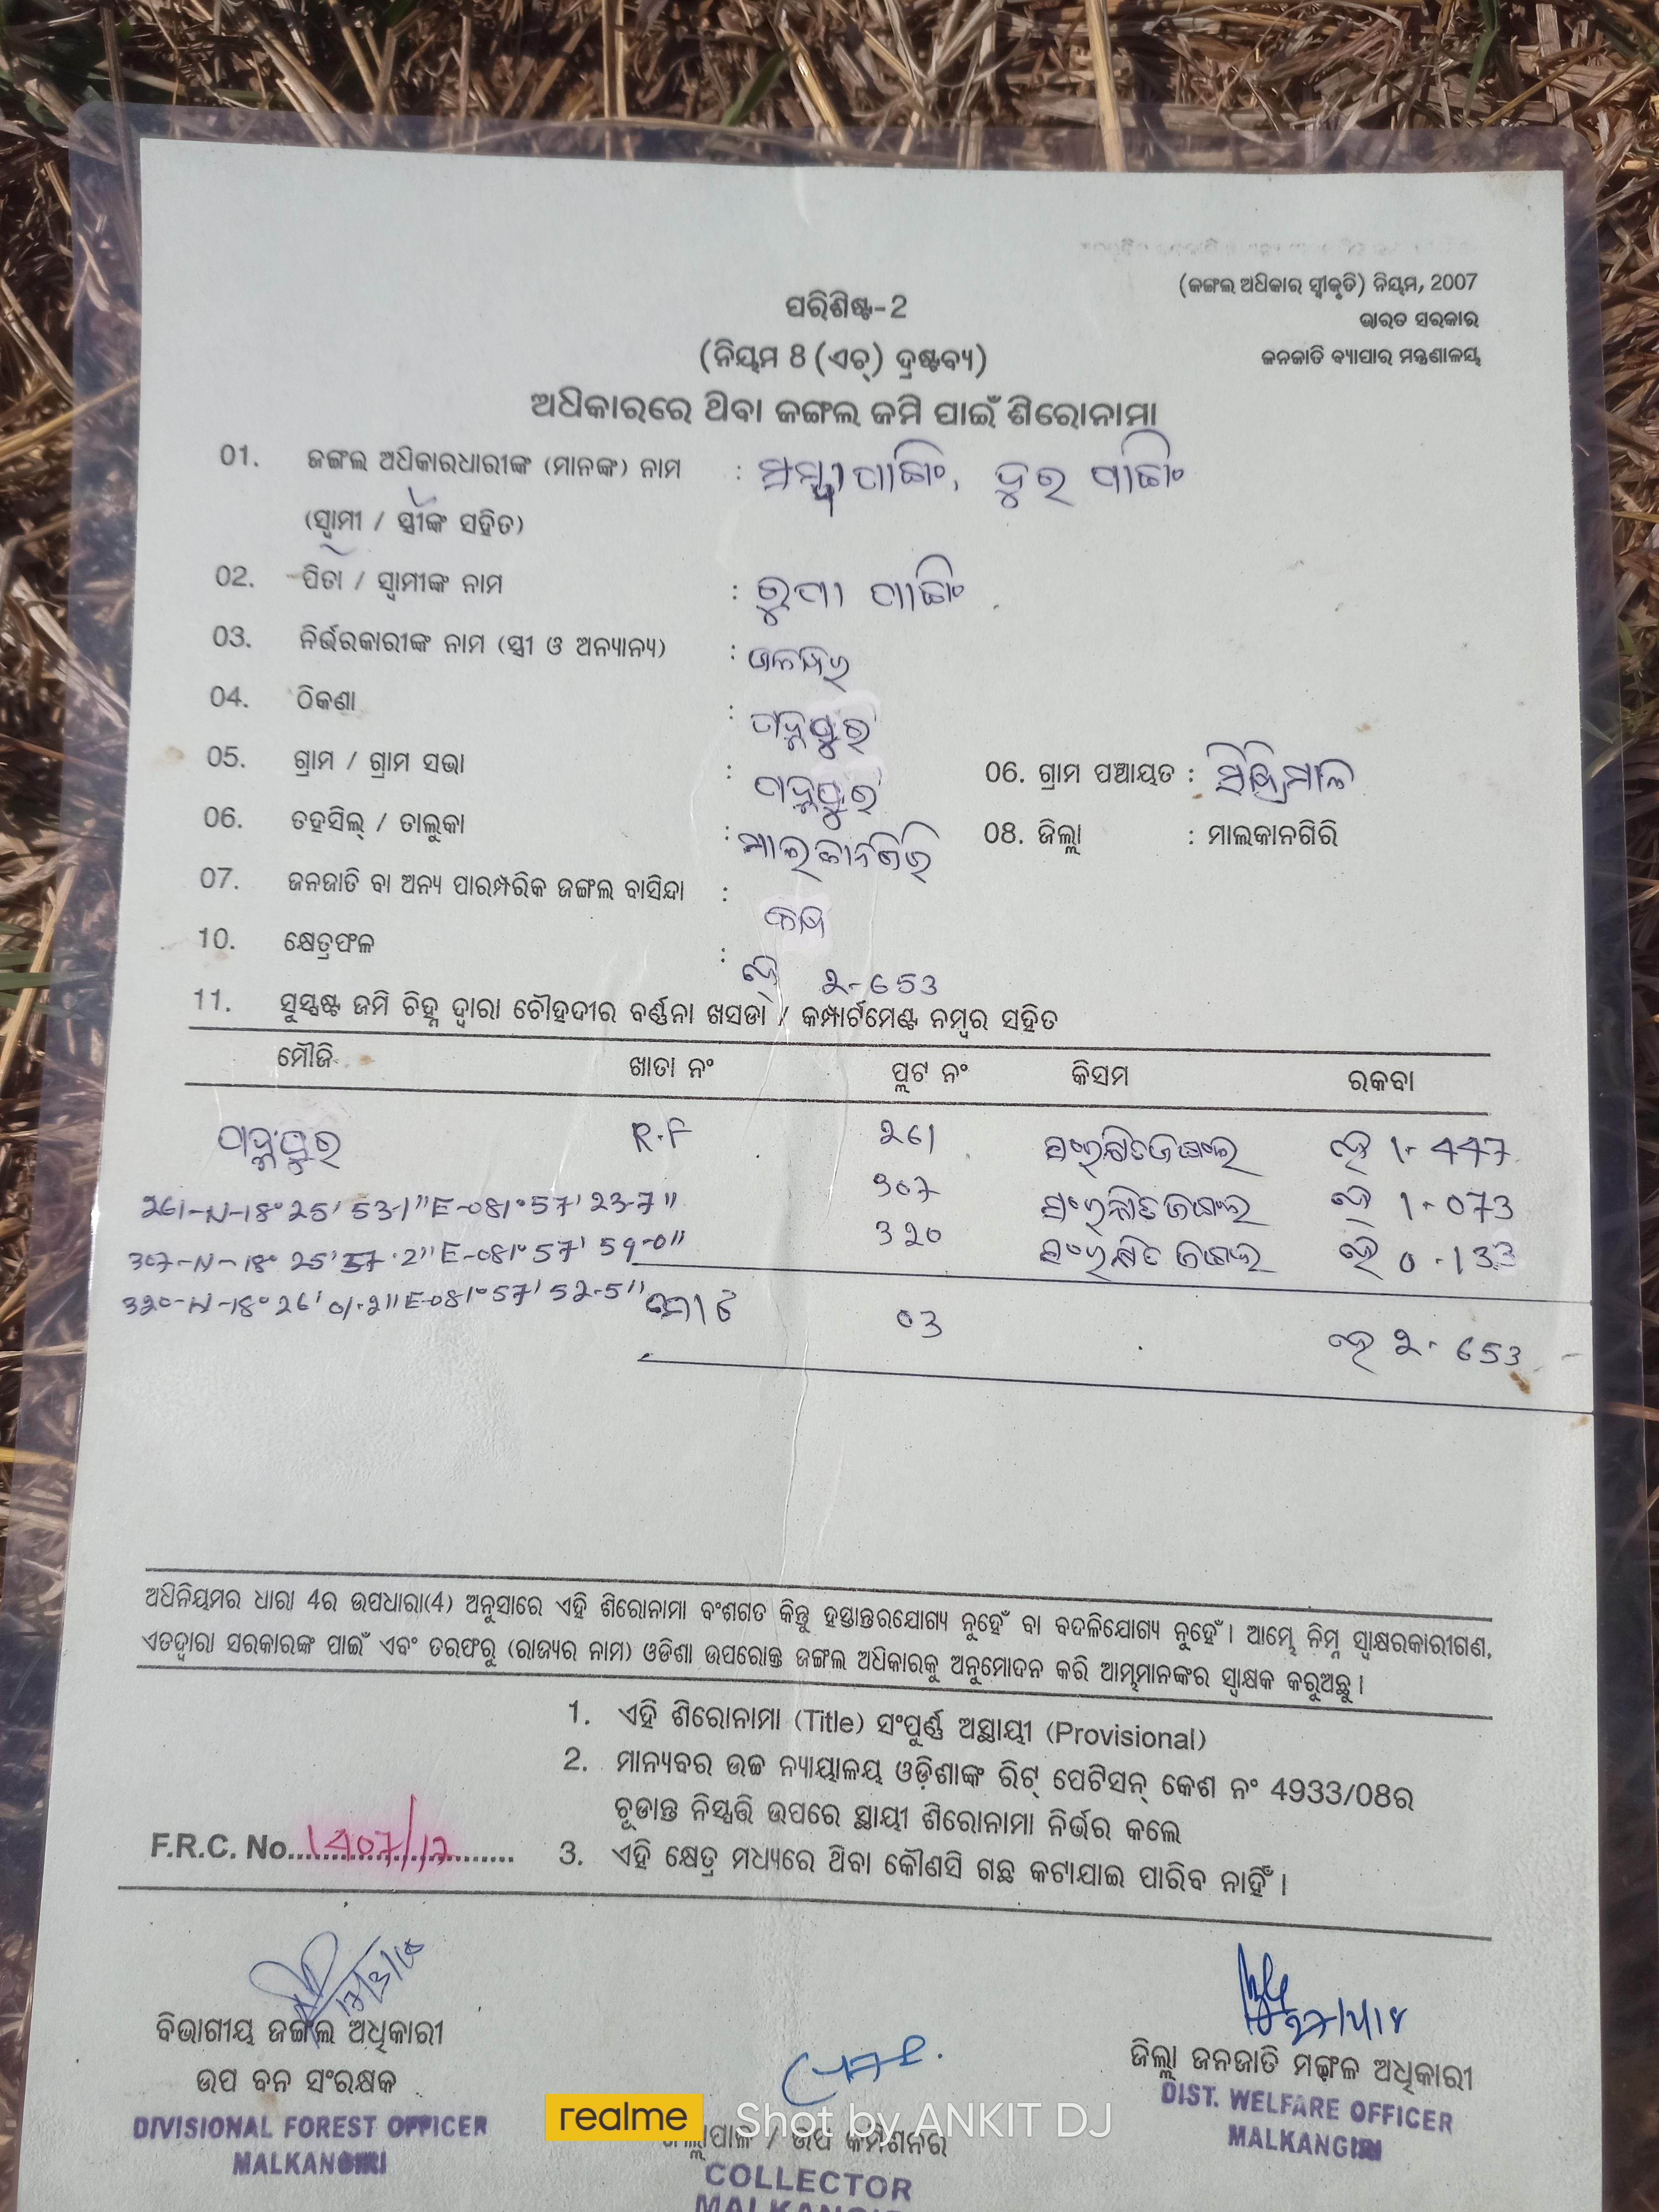 (ଜଙ୍ଗଲ ଅଧିକାର ସ୍ୱୀକୃତି) ନିୟମ, 2007
ଭାରତ ସରକାର
ଜନଜାତି ବ୍ୟାପାର ମନ୍ତ୍ରଣାଳୟ
ପରିଶିଷ୍ଟ-2
(ନିୟମ 8 (ଏଚ୍) ଦ୍ରଷ୍ଟବ୍ୟ)
ଅଧିକାରରେ ଥିବା ଜଙ୍ଗଲ ଜମି ପାଇଁ ଶିରୋନାମା
01. ଜଙ୍ଗଲ ଅଧିକାରଧାରୀଙ୍କ (ମାନଙ୍କ) ନାମ :
(ସ୍ୱାମୀ / ସ୍ତ୍ରୀଙ୍କ ସହିତ)
02. ପିତା / ସ୍ୱାମୀଙ୍କ ନାମ :
03. ନିର୍ଭରକାରୀଙ୍କ ନାମ (ସ୍ତ୍ରୀ ଓ ଅନ୍ୟାନ୍ୟ) :
04. ଠିକଣା :
05. ଗ୍ରାମ / ଗ୍ରାମ ସଭା : 06. ଗ୍ରାମ ପଞ୍ଚାୟତ :
06. ତହସିଲ୍ / ତାଲୁକା : ମାଲକାନଗିରି 08. ଜିଲ୍ଲା : ମାଲକାନଗିରି
07. ଜନଜାତି ବା ଅନ୍ୟ ପାରମ୍ପରିକ ଜଙ୍ଗଲ ବାସିନ୍ଦା :
10. କ୍ଷେତ୍ରଫଳ : ହେ 2-653
11. ସୁସ୍ପଷ୍ଟ ଜମି ଚିହ୍ନ ଦ୍ୱାରା ଚୌହଦୀର ବର୍ଣ୍ଣନା ଖସଡା / କମ୍ପାର୍ଟମେଣ୍ଟ ନମ୍ବର ସହିତ
ମୌଜି ଖାତା ନଂ ପ୍ଲଟ ନଂ କିସମ ରକବା
R.F 261 ସଂରକ୍ଷିତ ଜଙ୍ଗଲ ହେ 1-447
261-N-18° 25' 53-1" E-081° 57' 23-7" 307 ସଂରକ୍ଷିତ ଜଙ୍ଗଲ ହେ 1-073
307-N-18° 25' 57.2" E-081° 57' 59-0" 320 ସଂରକ୍ଷିତ ଜଙ୍ଗଲ ହେ 0-133
320-N-18° 26' 01.2" E-081° 57' 52-5" ମୋଟ 03 ହେ 2-653
ଅଧିନିୟମର ଧାରା 4ର ଉପଧାରା(4) ଅନୁସାରେ ଏହି ଶିରୋନାମା ବଂଶଗତ କିନ୍ତୁ ହସ୍ତାନ୍ତରଯୋଗ୍ୟ ନୁହେଁ ବା ବଦଳିଯୋଗ୍ୟ ନୁହେଁ। ଆମ୍ଭେ ନିମ୍ନ ସ୍ୱାକ୍ଷରକାରୀଗଣ,
ଏତଦ୍ୱାରା ସରକାରଙ୍କ ପାଇଁ ଏବଂ ତରଫରୁ (ରାଜ୍ୟର ନାମ) ଓଡିଶା ଉପରୋକ୍ତ ଜଙ୍ଗଲ ଅଧିକାରକୁ ଅନୁମୋଦନ କରି ଆମ୍ଭମାନଙ୍କର ସ୍ୱାକ୍ଷକ କରୁଅଛୁ।
1. ଏହି ଶିରୋନାମା (Title) ସଂପୂର୍ଣ୍ଣ ଅସ୍ଥାୟୀ (Provisional)
2. ମାନ୍ୟବର ଉଚ୍ଚ ନ୍ୟାୟାଳୟ ଓଡ଼ିଶାଙ୍କ ରିଟ୍ ପେଟିସନ୍ କେଶ ନଂ 4933/08ର
ଚୂଡାନ୍ତ ନିସ୍ପତ୍ତି ଉପରେ ସ୍ଥାୟୀ ଶିରୋନାମା ନିର୍ଭର କଲେ
F.R.C. No. 1407/17 3. ଏହି କ୍ଷେତ୍ର ମଧ୍ୟରେ ଥିବା କୌଣସି ଗଛ କଟାଯାଇ ପାରିବ ନାହିଁ।
ବିଭାଗୀୟ ଜଙ୍ଗଲ ଅଧିକାରୀ
ଉପ ବନ ସଂରକ୍ଷକ
DIVISIONAL FOREST OFFICER
MALKANGIRI
ଉପ କମିଶନର
COLLECTOR
ଜିଲ୍ଲା ଜନଜାତି ମଙ୍ଗଳ ଅଧିକାରୀ
DIST. WELFARE OFFICER
MALKANGIRI
realme Shot by ANKIT DJ